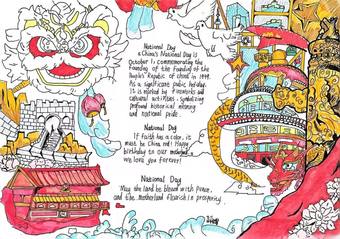 National Day
China's National Day is
October 1, commemorating the
founding of the Founding of the
People's Republic of China in 1949.
As a significant public holiday,
It is marked by fireworks and
cultural activities, symbolizing
profound historical meaning
and national pride.
National Day
If faith has a color, it
must be China red! Happy
birthday to our motherland
we love you forever!
National Day
May the land be blessed with peace,
and the motherland flourish in prosperity.